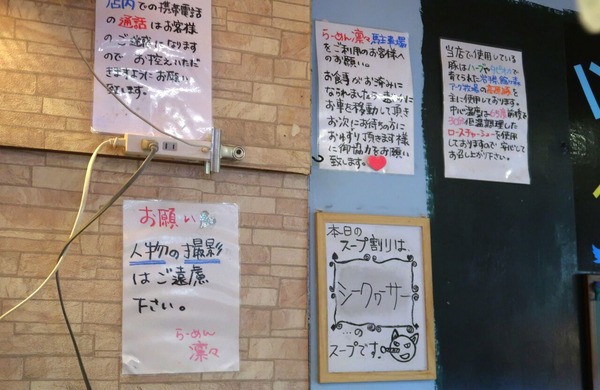 店内での携帯電話
の通話はお客様
のご迷惑になります
のでお控えいただ
きますようにお願い
致します。
らーめん凛々駐車場
をご利用のお客様へ
のお願い。
お食事がお済みに
なられましたら
お車を移動して頂き
お次にお待ちの方に
おゆずり頂きます様
に御協力をお願い
致します。
当店で使用している
豚はハーブや
育てられた
の
主に使用しております。
中心温度は
低温調理した
ロースチャーシューを使用
しておりますので安心して
お召し上がり下さい。
お願い
人物の撮影
はご遠慮
下さい。
らーめん
凛々
本日の
スープ割りは、
シークヮサー
…の
スープです。